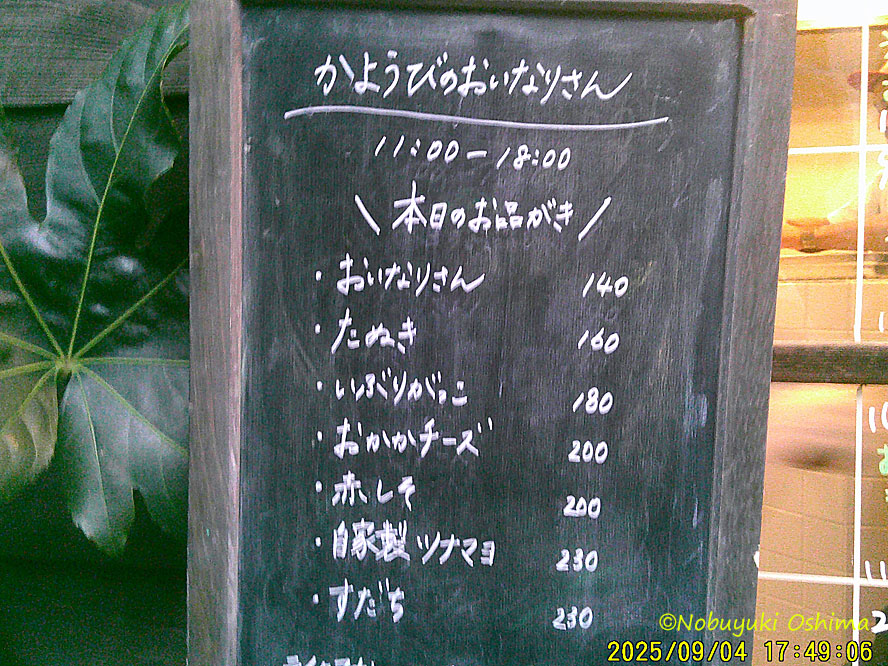 かようびのおいなりさん
11:00-18:00
\ 本日のお品がき /
・おいなりさん 140
・たぬき 160
・いぶりがっこ 180
・おかかチーズ 200
・赤しそ 200
・自家製ツナマヨ 230
・すだち 230
©Nobuyuki Oshima
2025/09/04 17:49:06